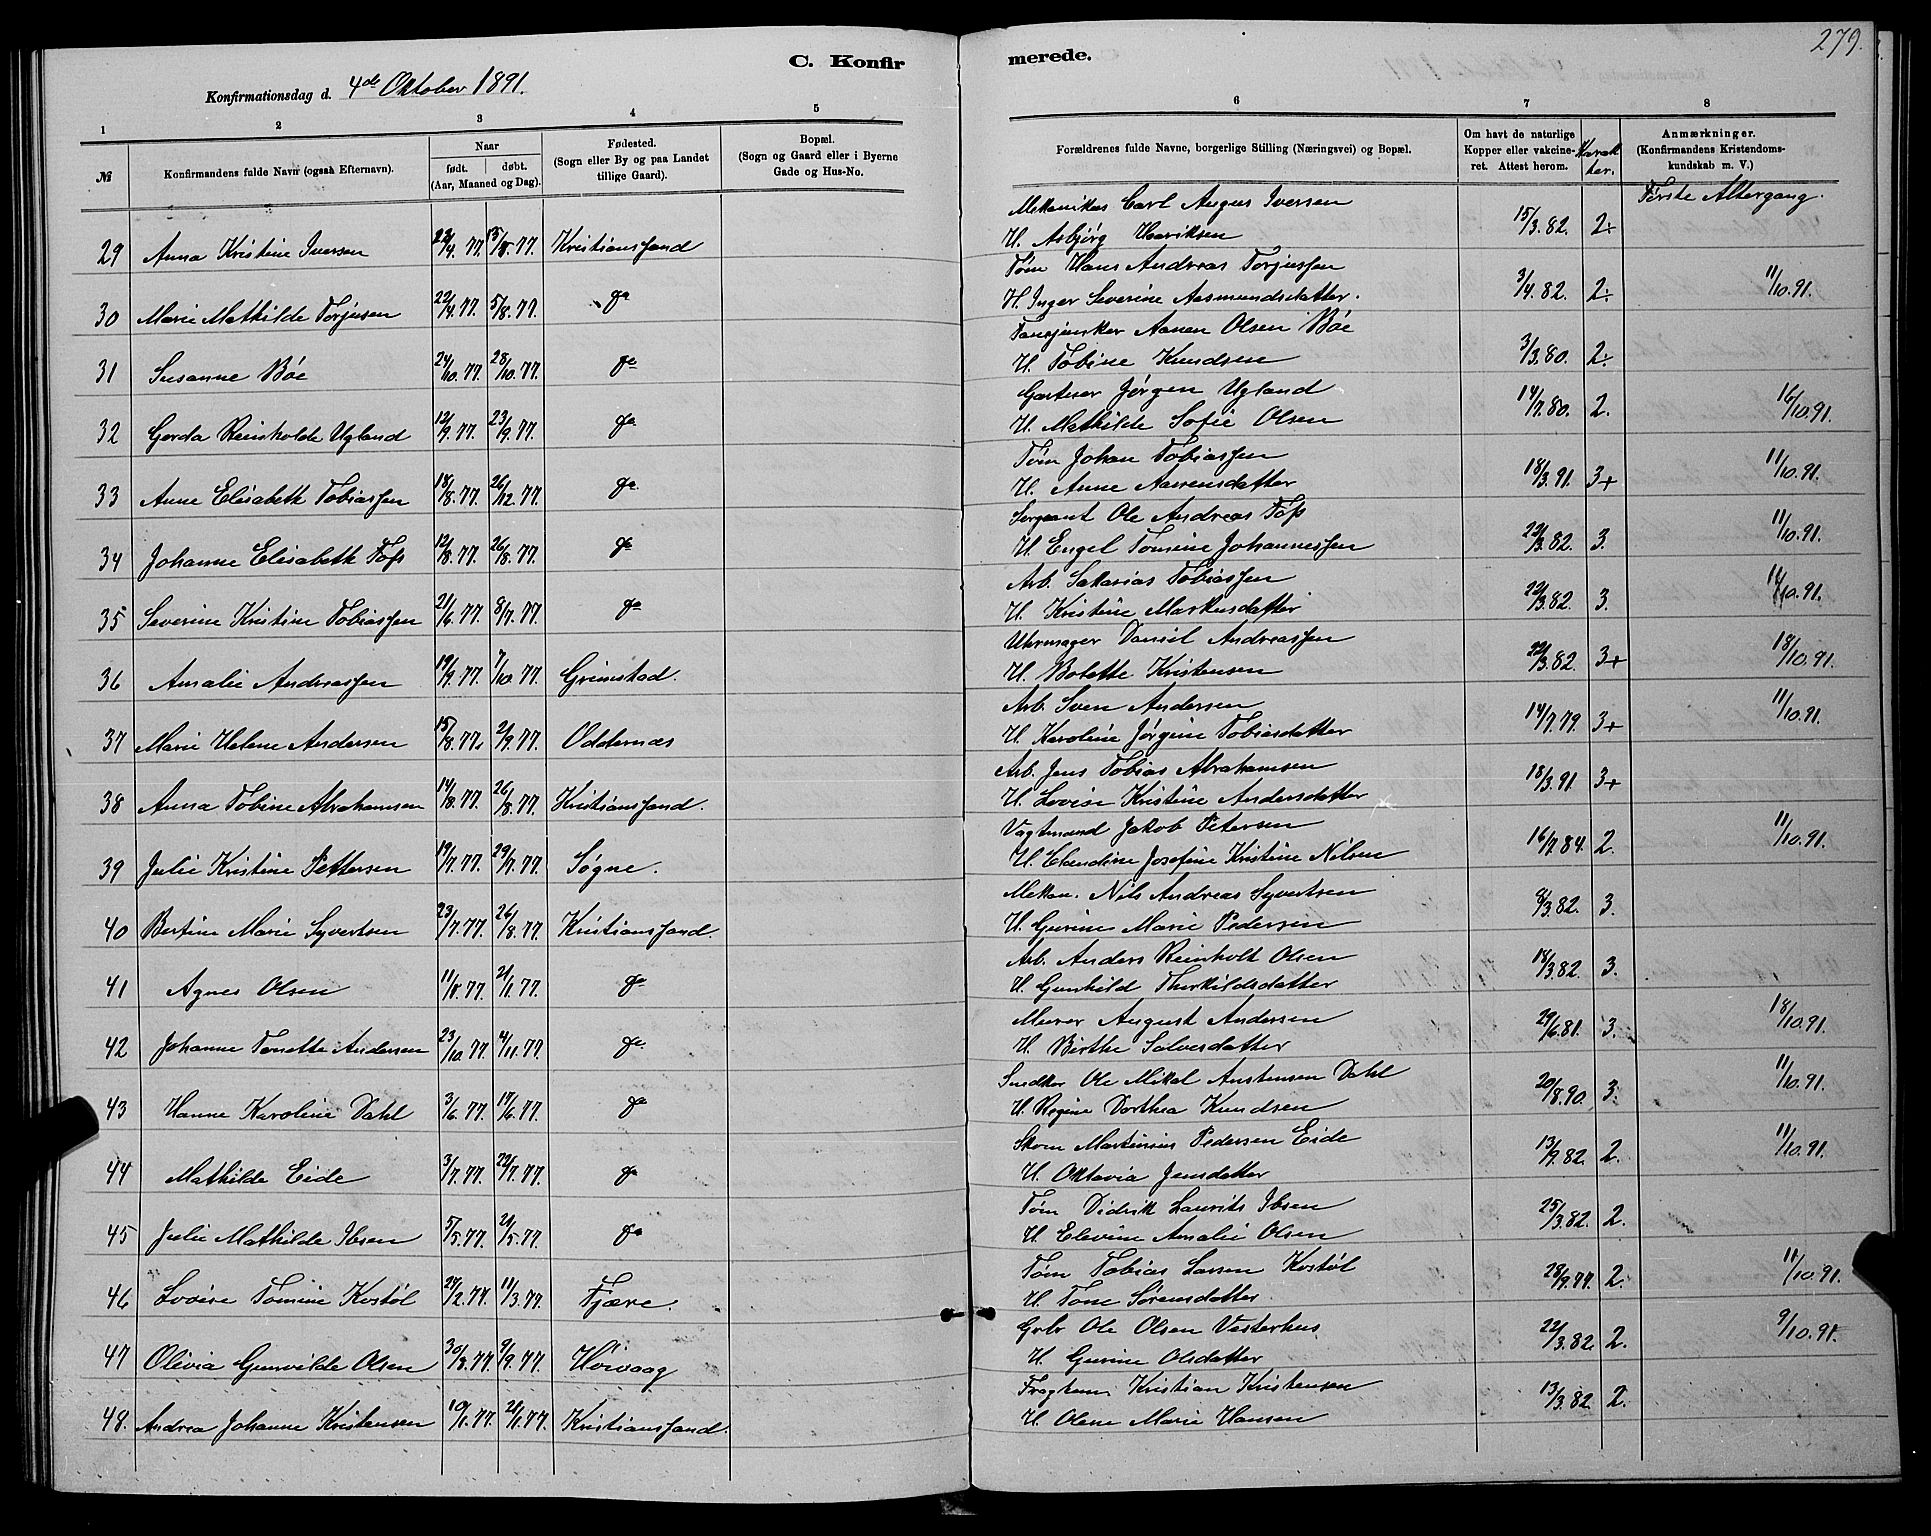 279.
C. Konfirmerede.
Konfirmationsdag d. 4de Oktober 1891.
1 2 3 4 5 6 7 8
№ Konfirmandens fulde Navn (ogsaa Efternavn). Naar født. døbt. (Aar, Maaned og Dag). Fødested. (Sogn eller By og paa Landet tillige Gaard). Bopæl. (Sogn og Gaard eller i Byerne Gade og Hus-No. Forældrenes fulde Navne, borgerlige Stilling (Næringsvei) og Bopæl. Om havt de naturlige Kopper eller vakcineret. Attest herom. Karakter. Anmærkninger. (Konfirmandens Kristendomskundskab m. V.)
Første Altergang.
Mekanikus Carl August Iversen
29 Anna Kristine Iversen 23/4.77. Kristianssand H. Asbjørg Henriksen 15/3.82. 2÷
Tøm Hans Andreas Torjussen
30 Marie Mathilde Torjusen 22/4.77. 5/8.77. do H. Inger Severine Aasmundsdatter. 3/4.82. 2÷ 11/10.91.
Aanen Olsen Bøe
31 Susanne Bøe 24/10.77. 28/10.77. do H. Tobine Knudsen 3/3.80. 2÷
Gartner Jørgen Ugland
32 Gerda Reinholde Ugland 12/9.77. 23/9.77. do H. Mathilde Sofie Olsen 14/7.80. 2. 16/10.91.
Tøm Johan Tobiassen
33 Anne Elisabeth Tobiassen 18/8.77. 26/12.77. do H. Anne Aanensdatter 18/3.91. 3+ 11/10.91.
Sergeant Ole Andreas Foss
34 Johanne Elisabeth Foss 12/8.77. 26/8.77. do H. Engel Tomine Johannessen 22/3.82. 3. 11/10.91.
Arb. Sakarias Tobiassen
35 Severine Kristine Tobiassen 21/6.77. 8/7.77. do H. Kristine Markusdatter 22/3.82. 3. 11/10.91.
Uhrmager Daniel Andreassen
36 Amalie Andreassen 19/9.77. 7/10.77. Grimstad. H. Bolette Kristensen 22/3.82. 3+ 18/10.91.
Arb. Sven Andersen
37 Marie Helene Andersen 15/8.77. 2/9.77. Oddernæs H. Karoline Jørgine Tobiasdatter 14/7.79. 3+ 11/10.91.
Arb. Jens Tobias Abrahamsen
38 Anna Tobine Abrahamsen 14/8.77. 26/8.77. Kristianssand. H. Lovise Kristine Andersdatter 18/3.91. 3+
Vagtmand Jakob Petersen
39 Julie Kristine Pettersen 19/7.77. 29/7.77. Søgne. H. Claudine Josefine Kristine Nilsen 16/7.84. 2. 11/10.91.
Mekan. Nils Andreas Syvertsen
40 Bertine Marie Syvertsen 23/7.77. 26/8.77. Kristianssand. H. Gurine Marie Pedersen 8/3.82. 3.
Arb. Anders Reinholt Olsen
41 Agnes Olsen do H. Gunhild Therkildsdatter 18/3.82. 3.
Murer August Andersen
42 Johanne Tonette Andersen 23/10.77. 4/11.77. do H. Birthe Salvesdatter 29/6.81. 3. 18/10.91.
Snedker Ole Mikal Anstensen Dahl
43 Hanne Karoline Dahl 3/6.77. 17/6.77. do H. Regine Dorthea Knudsen 20/8.90. 3. 11/10.91.
Skom Martinius Pedersen Eide
44 Mathilde Eide 3/7.77. 22/7.77. do H. Oktavia Jensdatter 13/9.82. 2. 11/10.91.
Tøm Didrik Laurits Ibsen
45 Julie Mathilde Ibsen 5/5.77. 21/5.77. do H. Elevine Amalie Olsen 25/3.82. 2.
Tøm Tobias Larsen Kostøl
46 Lovise Tomine Kostøl 27/2.77. 11/3.77. Fjære. H. Tone Sørensdatter. 28/9.77. 2. 11/10.91.
Grbr Ole Olsen Vesterhus
47 Olivia Gunvilde Olsen 30/3.77. 9/9.77. Høivaag H. Gurine Olsdatter 22/3.82. 2. 9/10.91.
Kristian Kristensen
48. Andrea Johanne Kristensen 19/1.77. 21/1.77. Kristianssand. H. Olene Marie Hansen 13/3.82. 2.